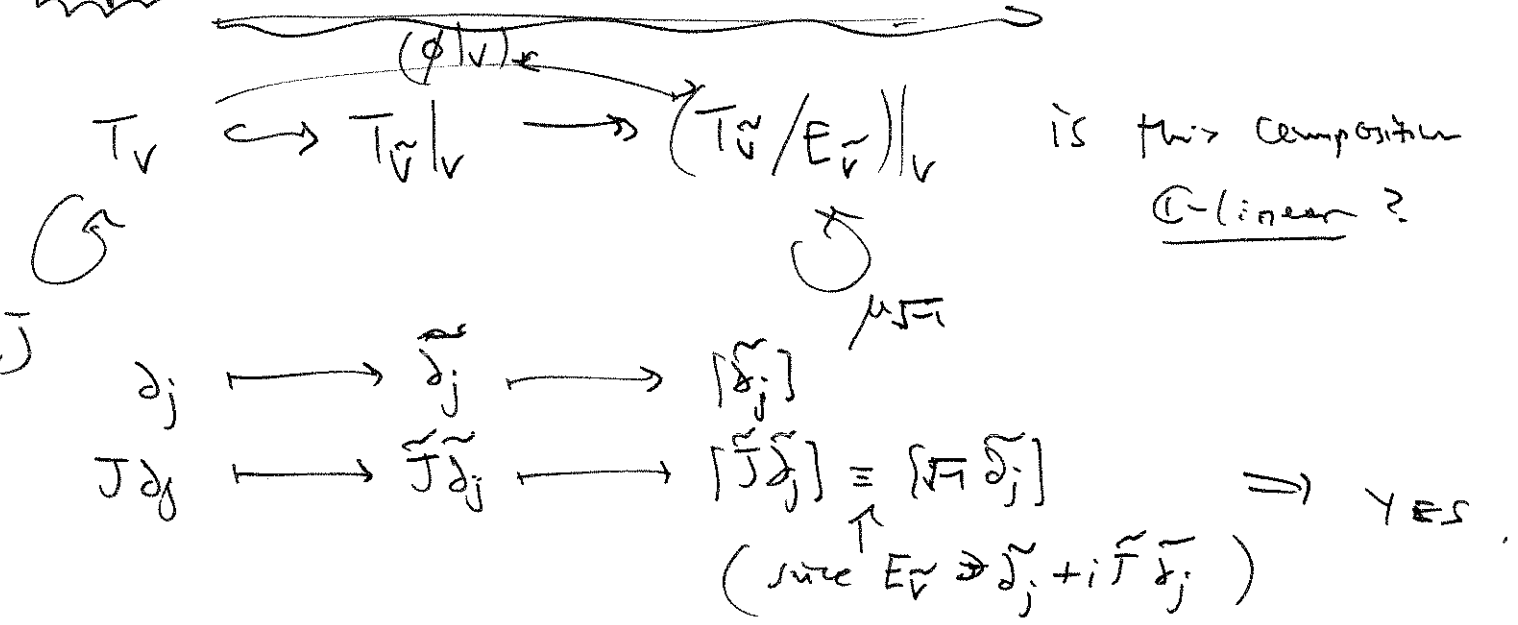 (ϕ|_V)_*
T_V ↪ T_Ṽ|_V ↠ (T_Ṽ/E_Ṽ)|_V is this composition
ℂ-linear ?
J μ√-1
∂_j ⟼ ∂̃_j ⟼ [∂̃_j]
J∂_j ⟼ J̃∂̃_j ⟼ [J̃∂̃_j] ≡ [√-1 ∂̃_j] ⇒ YES.
↑
(since E_Ṽ ∋ ∂̃_j + i J̃∂̃_j)